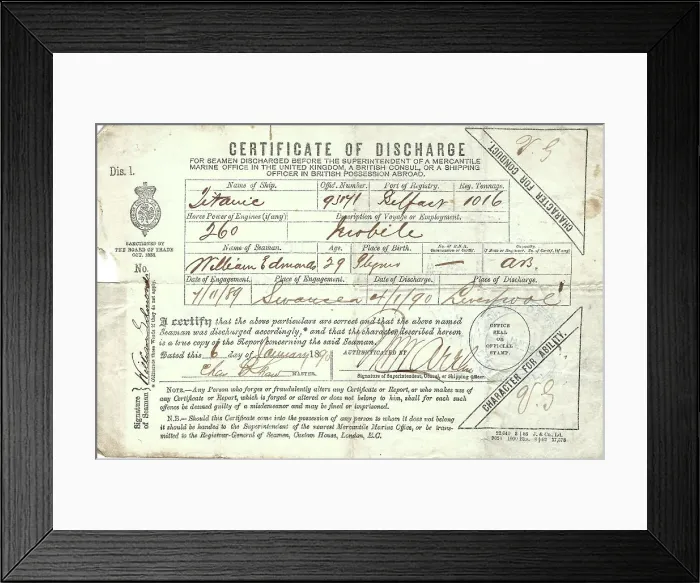 CERTIFICATE OF DISCHARGE
FOR SEAMEN DISCHARGED BEFORE THE SUPERINTENDENT OF A MERCANTILE
MARINE OFFICE IN THE UNITED KINGDOM, A BRITISH CONSUL, OR A SHIPPING
OFFICER IN BRITISH POSSESSION ABROAD.
Dis. 1.
SANCTIONED BY
THE BOARD OF TRADE
No.
Name of Ship. Offic. Number. Port of Registry. Reg. Tonnage.
Titanic Belfast 1016
Horse Power of Engines (if any) Description of Voyage or Employment.
260 Mobile
Name of Seaman. Age. Place of Birth.
William Edmonds 29
Date of Engagement. Place of Engagement. Date of Discharge. Place of Discharge.
Swansea 4/1/90 Liverpool
I certify that the above particulars are correct and that the above named
Seaman was discharged accordingly,* and that the character described hereon
is a true copy of the Report concerning the said Seaman.
Dated this 6 day of January
AUTHENTICATED BY
MASTER.
Signature of Superintendent, Consul, or Shipping Officer
OFFICE
SEAL
OR
OFFICIAL
STAMP.
CHARACTER FOR CONDUCT.
V G
CHARACTER FOR ABILITY.
V G
Signature
of Seaman
NOTE.—Any Person who forges or fraudulently alters any Certificate or Report, or who makes use of
any Certificate or Report, which is forged or altered or does not belong to him, shall for each such
offence be deemed guilty of a misdemeanor and may be fined or imprisoned.
N.B.—Should this Certificate come into the possession of any person to whom it does not belong
it should be handed to the Superintendent of the nearest Mercantile Marine Office, or be trans-
mitted to the Registrar-General of Seamen, Custom House, London, E.C.